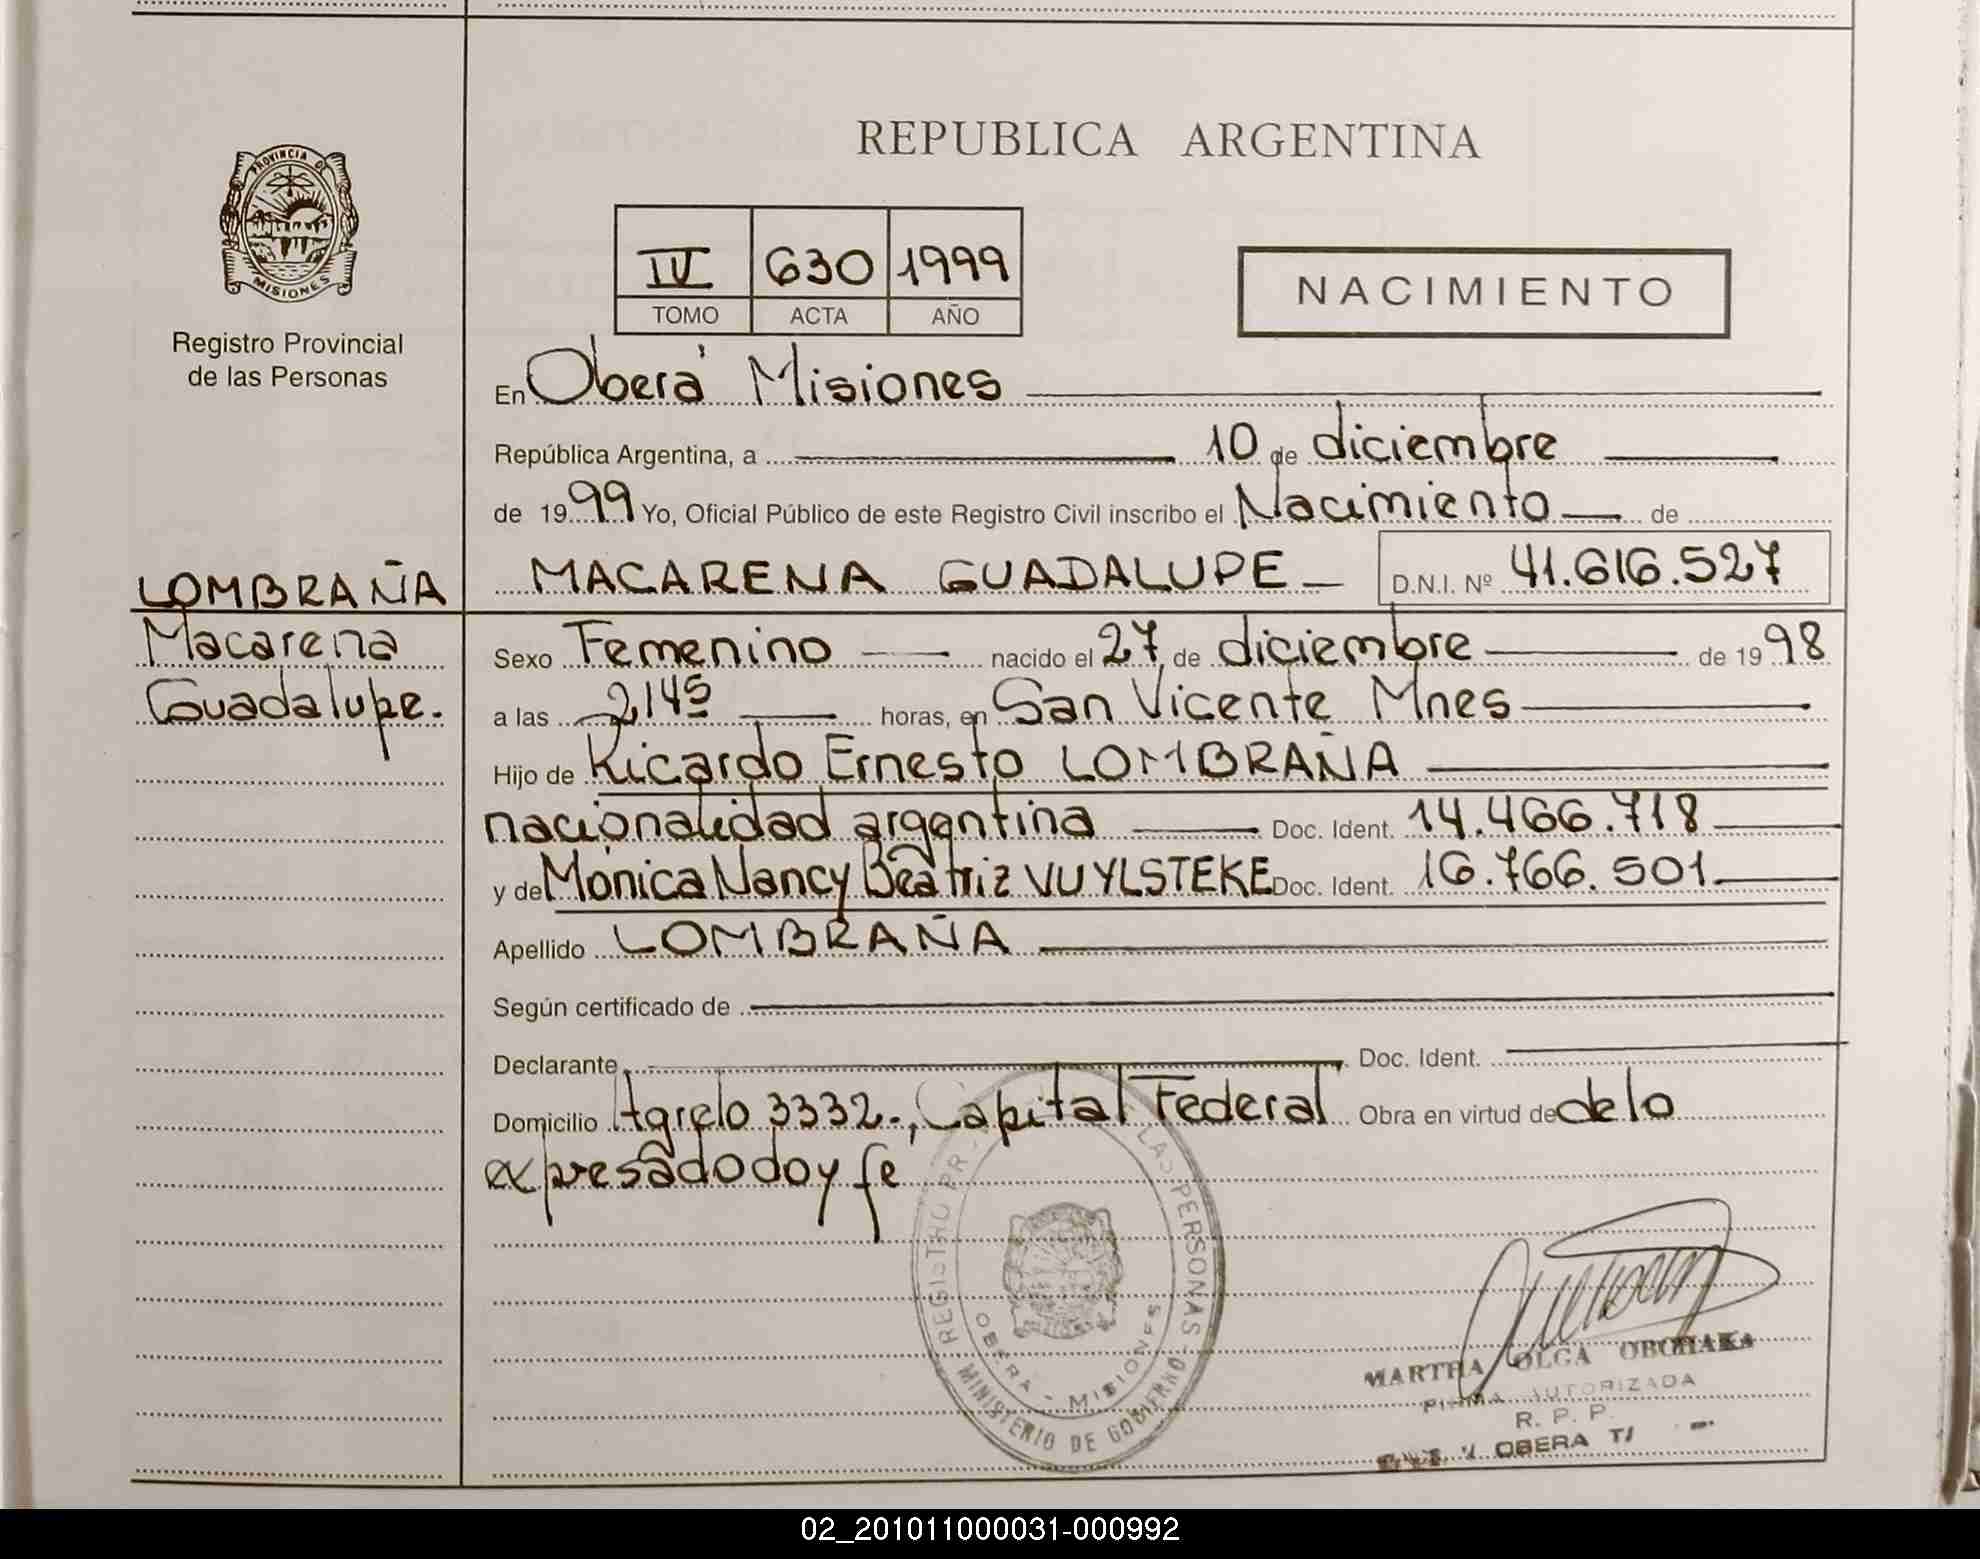 REPUBLICA ARGENTINA
PROVINCIA D
MISIONES
Registro Provincial
de las Personas
IV 630 1999
TOMO ACTA AÑO
NACIMIENTO
En Oberá Misiones
República Argentina, a 10 de diciembre
de 1999 Yo, Oficial Público de este Registro Civil inscribo el Nacimiento de
MACARENA GUADALUPE D.N.I. Nº 41.616.527
LOMBRAÑA
Macarena
Guadalupe.
Sexo Femenino nacido el 27 de diciembre de 1998
a las 2145 horas, en San Vicente Mnes
Hijo de Ricardo Ernesto LOMBRAÑA
nacionalidad argentina Doc. Ident. 14.466.718
y de Mónica Nancy Beatriz VUYLSTEKE Doc. Ident. 16.766.501
Apellido LOMBRAÑA
Según certificado de
Declarante Doc. Ident.
Domicilio Agrelo 3332., Capital Federal Obra en virtud de de lo
expresado doy fe
REGISTRO PR LAS PERSONAS
OBERA - MISIONES
MINISTERIO DE GOBIERNO
MARTHA OLGA
FIRMA AUTORIZADA
R. P. P.
OBERA
02_201011000031-000992